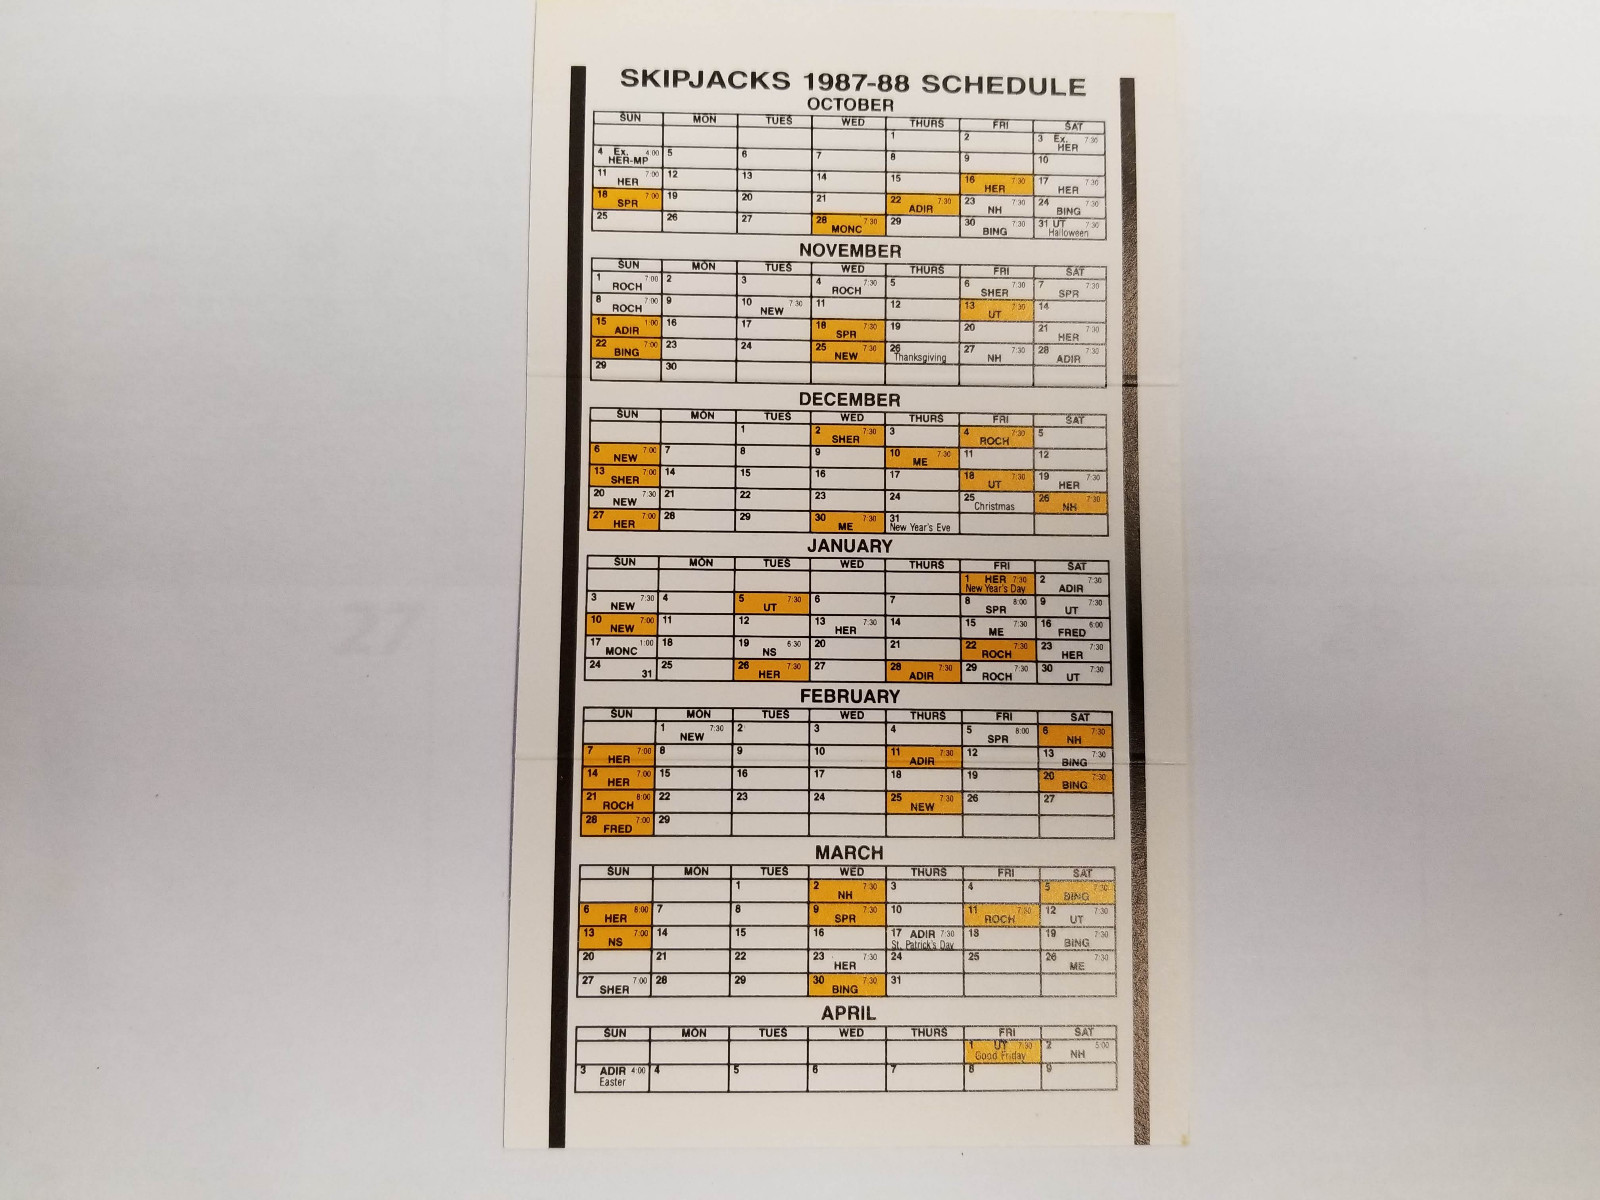 SKIPJACKS 1987-88 SCHEDULE
OCTOBER
SUN MON TUES WED THURS FRI SAT
1 2 3 Ex. 7:30 HER
4 Ex. 4:00 HER-MP 5 6 7 8 9 10
11 7:00 HER 12 13 14 15 16 7:30 HER 17 7:30 HER
18 7:00 SPR 19 20 21 22 7:30 ADIR 23 7:30 NH 24 7:30 BING
25 26 27 28 7:30 MONC 29 30 7:30 BING 31 UT 7:30 Halloween
NOVEMBER
SUN MON TUES WED THURS FRI SAT
1 7:00 ROCH 2 3 4 7:30 ROCH 5 6 7:30 SHER 7 7:30 SPR
8 7:00 ROCH 9 10 7:30 NEW 11 12 13 7:30 UT 14
15 1:00 ADIR 16 17 18 7:30 SPR 19 20 21 7:30 HER
22 7:00 BING 23 24 25 7:30 NEW 26 Thanksgiving 27 7:30 NH 28 7:30 ADIR
29 30
DECEMBER
SUN MON TUES WED THURS FRI SAT
1 2 7:30 SHER 3 4 7:30 ROCH 5
6 7:00 NEW 7 8 9 10 7:30 ME 11 12
13 7:00 SHER 14 15 16 17 18 7:30 UT 19 7:30 HER
20 7:30 NEW 21 22 23 24 25 Christmas 26 7:30 NH
27 7:00 HER 28 29 30 7:30 ME 31 New Year's Eve
JANUARY
SUN MON TUES WED THURS FRI SAT
1 HER 7:30 New Year's Day 2 7:30 ADIR
3 7:30 NEW 4 5 7:30 UT 6 7 8 8:00 SPR 9 7:30 UT
10 7:00 NEW 11 12 13 7:30 HER 14 15 7:30 ME 16 6:00 FRED
17 1:00 MONC 18 19 6:30 NS 20 21 22 7:30 ROCH 23 7:30 HER
24 31 25 26 7:30 HER 27 28 7:30 ADIR 29 7:30 ROCH 30 7:30 UT
FEBRUARY
SUN MON TUES WED THURS FRI SAT
1 7:30 NEW 2 3 4 5 8:00 SPR 6 7:30 NH
7 7:00 HER 8 9 10 11 7:30 ADIR 12 13 7:30 BING
14 7:00 HER 15 16 17 18 19 20 7:30 BING
21 8:00 ROCH 22 23 24 25 7:30 NEW 26 27
28 7:00 FRED 29
MARCH
SUN MON TUES WED THURS FRI SAT
1 2 7:30 NH 3 4 5 7:30 BING
6 8:00 HER 7 8 9 7:30 SPR 10 11 7:30 ROCH 12 7:30 UT
13 7:00 NS 14 15 16 17 ADIR 7:30 St. Patrick's Day 18 19 7:30 BING
20 21 22 23 7:30 HER 24 25 26 7:30 ME
27 7:00 SHER 28 29 30 7:30 BING 31
APRIL
SUN MON TUES WED THURS FRI SAT
1 UT 7:30 Good Friday 2 5:00 NH
3 ADIR 4:00 Easter 4 5 6 7 8 9